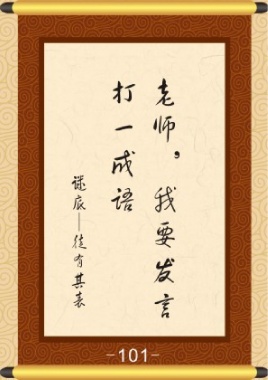 老师，我要发言
打一成语
谜底——徒有其表
-101-